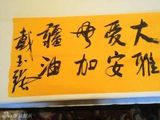 大爱毋疆
雅安加油
戴玉强